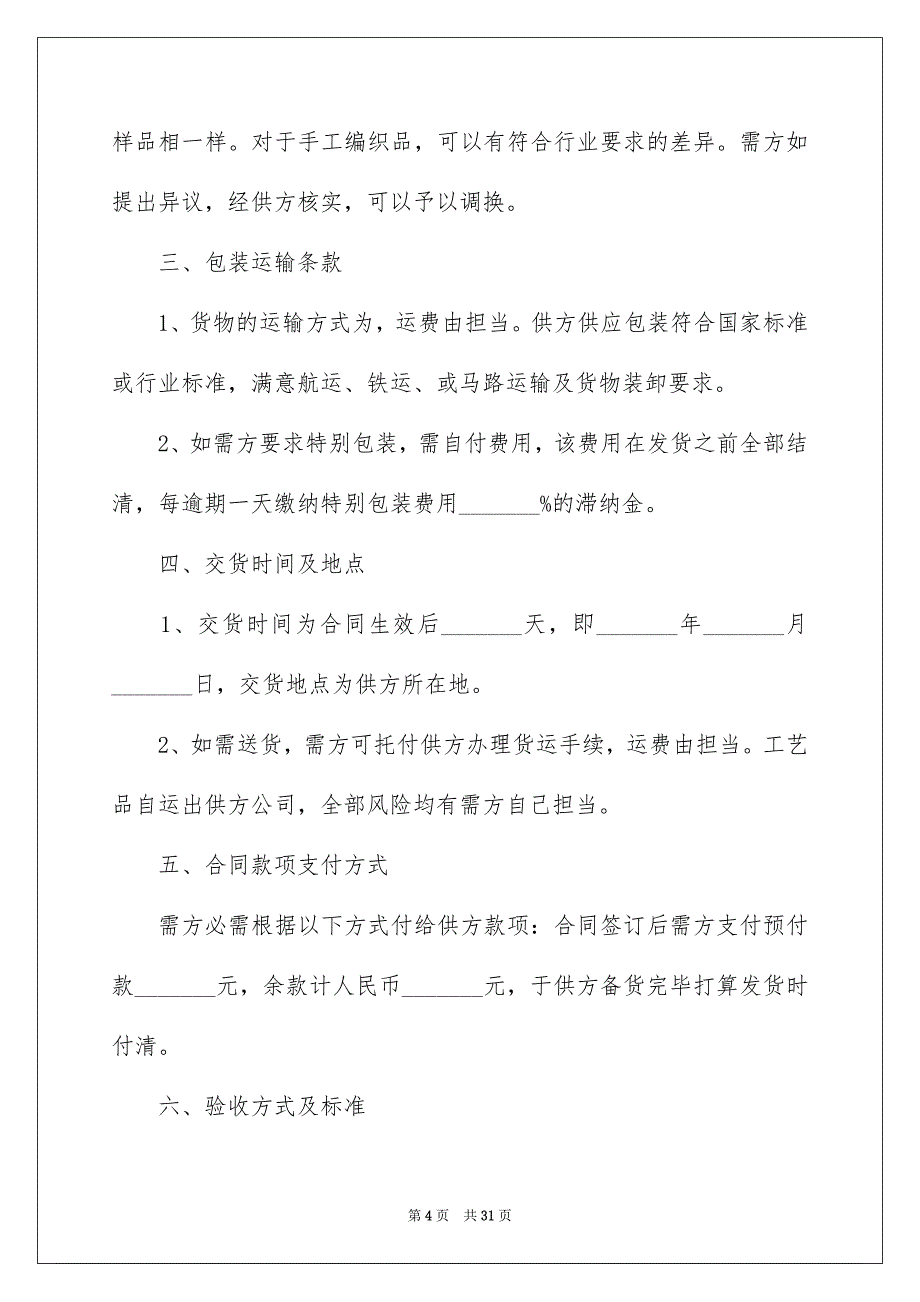 样品相一样。对于手工编织品，可以有符合行业要求的差异。需方如
提出异议，经供方核实，可以予以调换。
三、包装运输条款
1、货物的运输方式为，运费由担当。供方供应包装符合国家标准
或行业标准，满意航运、铁运、或马路运输及货物装卸要求。
2、如需方要求特别包装，需自付费用，该费用在发货之前全部结
清，每逾期一天缴纳特别包装费用_______%的滞纳金。
四、交货时间及地点
1、交货时间为合同生效后_______天，即_______年_______月
_______日，交货地点为供方所在地。
2、如需送货，需方可托付供方办理货运手续，运费由担当。工艺
品自运出供方公司，全部风险均有需方自己担当。
五、合同款项支付方式
需方必需根据以下方式付给供方款项：合同签订后需方支付预付
款_______元，余款计人民币_______元，于供方备货完毕打算发货时
付清。
六、验收方式及标准
第 4 页 共 31 页